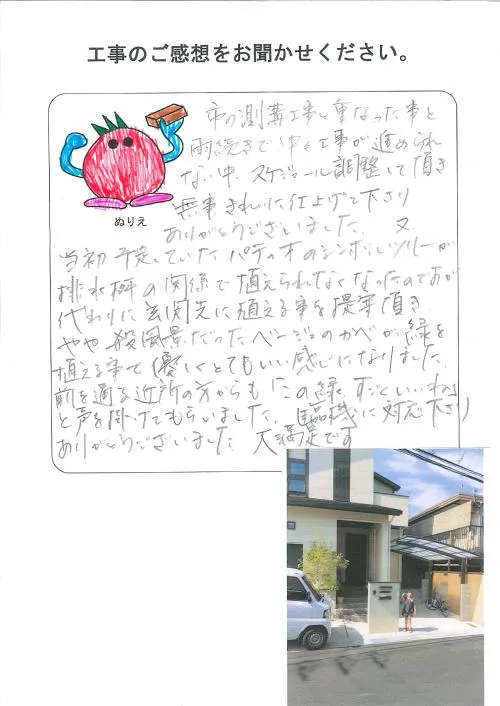 工事のご感想をお聞かせください。
市の測溝工事と重なった事と
雨続きで中々工事が進められ
ない中、スケジュール調整して頂き
無事きれいに仕上げて下さり
ありがとうございました。又
ぬりえ
当初予定していたパティオのシンボルツリーが
排水桝の関係で植えられなくなったのですが
代わりに玄関先に植える事を提案頂き
やや殺風景だったベージュのかべが緑を
植える事で優しくとてもいい感じになりました。
前を通る近所の方からも「この緑、すごくいいね」
と声を掛けてもらいました。臨機に対応下さり
ありがとうございました 大満足です